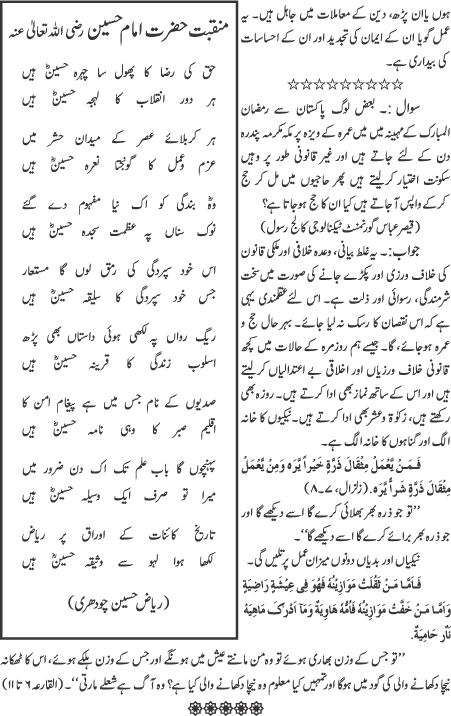 ہوں یا ان پڑھ، دین کے معاملات میں جاہل ہیں۔ یہ
عمل گویا ان کے ایمان کی تجدید اور ان کے احساسات
کی بیداری ہے۔
☆☆☆☆☆☆☆☆☆
سوال :۔ بعض لوگ پاکستان سے رمضان
المبارک کے مہینہ میں میں عمرہ کے ویزہ پر مکہ مکرمہ پندرہ
دن کے لئے جاتے ہیں اور غیر قانونی طور پر وہیں
سکونت اختیار کرلیتے ہیں پھر حاجیوں میں مل کر حج
کرکے واپس آ جاتے ہیں کیا ان کا حج ہوجاتا ہے؟
(قیصر عباس گورنمنٹ ٹیکنالوجی کالج رسول)
جواب:۔ یہ غلط بیانی، وعدہ خلافی اور ملکی قانون
کی خلاف ورزی اور پکڑے جانے کی صورت میں سخت
شرمندگی، رسوائی اور ذلت ہے۔ اس لئے عقلمندی یہی
ہے کہ اس نقصان کا رسک نہ لیا جائے۔ بہر حال حج و
عمرہ ہوجائے، گا۔ جیسے ہم روزمرہ کے حالات میں کچھ
قانونی خلاف ورزیاں اور اخلاقی بے اعتدالیاں کرلیتے
ہیں اور اس کے ساتھ نماز بھی ادا کرتے ہیں۔ روزہ بھی
رکھتے ہیں، زکوٰۃ و عشر بھی ادا کرتے ہیں۔ نیکیوں کا خانہ
الگ اور گناہوں کا خانہ الگ ہے۔
فَمَنْ یَّعْمَلْ مِثْقَالَ ذَرَّةٍ خَیْراً یَّرَه وَمِنْ یَّعْمَلْ
مِثْقَالَ ذَرَّةٍ شراً یَّرَه. (زلزال، ۷۔۸)
’’تو جو ذرہ بھر بھلائی کرے گا اسے دیکھے گا اور
جو ذرہ بھر برائے کرے گا اسے دیکھے گا‘‘۔
نیکیاں اور بدیاں دونوں میزان عمل پر تلیں گی۔
فَاَمَّا مَنْ ثَقُلَتْ مَوَازِیْنُهٗ فَهُوَ فِی عِیْشَةٍ رَاضِیَةٍ
وَاَمَّا مَنْ خَفَّتْ مَوَازِیْنُهٗ فَاُمُّهٗ هَاوِیَةٌ وَمَآ اَدْرٰکَ مَاهِیَهْ
نَارٌ حَامِیَةٌ.
منقبت حضرت امام حسین رضی اللہ تعالیٰ عنہ
حق کی رضا کا پھول سا چہرہ حسینؓ ہیں
ہر دور انقلاب کا لہجہ حسینؓ ہیں
ہر کربلائے عصر کے میدان حشر میں
عزم و عمل کا گونجتا نعرہ حسینؓ ہیں
وہ بندگی کو اک نیا مفہوم دے گئے
نوک سناں پہ عظمت سجدہ حسینؓ ہیں
اس خود سپردگی کی رمق لوں گا مستعار
جس خود سپردگی کا سلیقہ حسینؓ ہیں
ریگ رواں پہ لکھی ہوئی داستاں بھی پڑھ
اسلوب زندگی کا قرینہ حسینؓ ہیں
صدیوں کے نام جس میں ہے پیغام امن کا
اقلیم صبر کا وہی نامہ حسینؓ ہیں
پہنچوں گا باب علم تک اک دن ضرور میں
میرا تو صرف ایک وسیلہ حسینؓ ہیں
تاریخ کائنات کے اوراق پر ریاض
لکھا ہوا لہو سے وثیقہ حسینؓ ہیں
(ریاض حسین چودھری)
’’تو جس کے وزن بھاری ہوئے تو وہ من مانتے عیش میں ہونگے اور جس کے وزن ہلکے ہوئے، اس کا ٹھکانہ
نیچا دکھانے والی کی گود میں ہوگا اور تمہیں کیا معلوم وہ نیچا دکھانے والی کیا ہے؟ وہ آگ ہے شعلے مارتی‘‘۔ (القارعہ ۶ تا ۱۱)